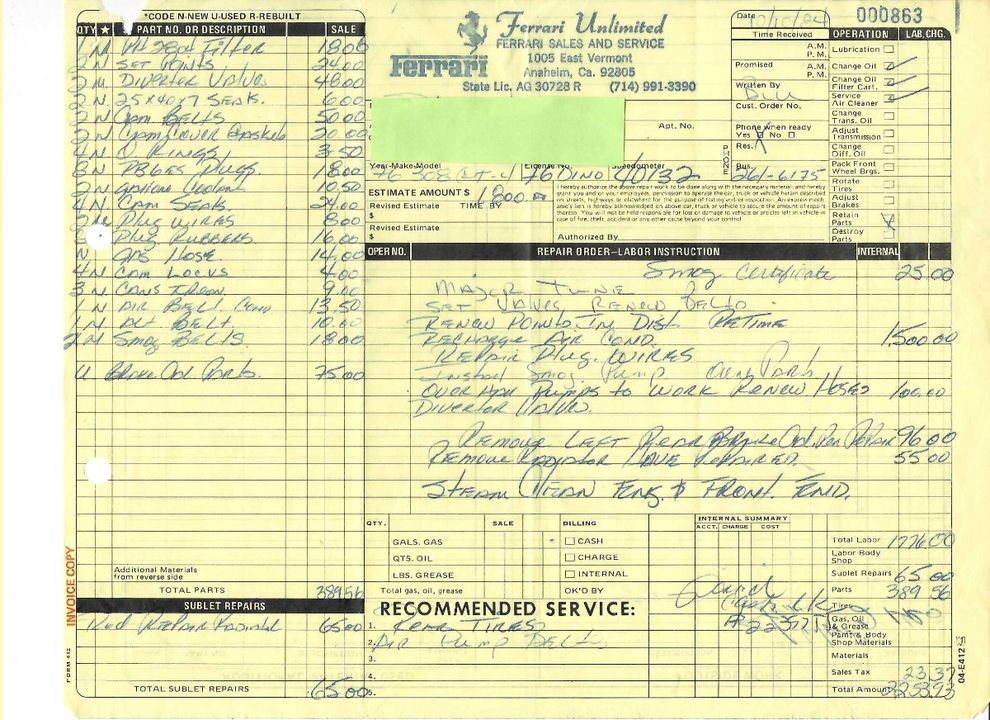 *CODE N-NEW U-USED R-REBUILT
QTY ★ S PART NO. OR DESCRIPTION SALE
1 N Filter 18.06
2 N SET POINTS 24.00
2 N DIVERTER VALVE 48.00
2 N 25X40X7 SEALS. 6.00
2 N Cam BELTS 50.00
2 N Cam Cover Gaskets 20.00
4 N O RINGS 3.50
8 N Plugs 18.00
2 N Coolant 10.50
4 N Cam SEALS 24.00
2 Plug WIRES 8.00
Plug RUBBERS 16.00
N HOSE 14.00
4 N Cam Locks 4.00
3 N 9.00
1 N AIR BELT Cond 13.50
1 N ALT BELT 10.00
2 N Smog BELTS. 18.00
U Brake Parts. 75.00
Additional Materials
from reverse side
TOTAL PARTS 389.56
SUBLET REPAIRS
REPAIR 65.00
TOTAL SUBLET REPAIRS 65.00
INVOICE COPY
FORM 412
Ferrari Unlimited
FERRARI SALES AND SERVICE
1005 East Vermont
Anaheim, Ca. 92805
State Lic. AG 30728 R (714) 991-3390
Ferrari
Date 10/10/84 000863
Time Received
A.M.
P.M.
Promised A.M.
P.M.
Written By Bill
Cust. Order No.
Apt. No.
Phone when ready
Yes ☐ No ☐
PHONE
Res.
Bus. 261-6175
Year-Make-Model License No. Speedometer
76 308 GT-4 76 DINO 40132
ESTIMATE AMOUNT $ 1800.00
Revised Estimate TIME BY
$
Revised Estimate
$
I hereby authorize the above repair work to be done along with the necessary material, and hereby grant you and/or your employees, permission to operate the car, truck or vehicle herein described on streets, highways or elsewhere for the purpose of testing and/or inspection. An express mechanic's lien is hereby acknowledged on above car, truck or vehicle to secure the amount of repairs thereto. You will not be held responsible for loss or damage to vehicle or articles left in vehicle in case of fire, theft, accident or any other cause beyond your control
Authorized By
OPERATION LAB. CHG.
Lubrication
Change Oil
Change
Filter Cart.
Service
Air Cleaner
Change
Trans. Oil
Adjust
Transmission
Change
Diff. Oil
Pack Front
Wheel Brgs.
Rotate
Tires
Adjust
Brakes
Retain
Parts
Destroy
Parts
OPER NO. REPAIR ORDER-LABOR INSTRUCTION INTERNAL
Smog Certificate 25.00
MAJOR TUNE
SET VALVES RENEW BELTS
RENEW POINTS IN DIST RETIME
RECHARGE AIR COND. 1,500.00
REPAIR Plug WIRES
Install Smog Pump Own Parts
PUMPS to WORK RENEW HOSES 100.00
DIVERTER VALVE.
REMOVE LEFT REAR Brake Repair 96.00
REMOVE RADIATOR HAVE REPAIRED. 55.00
STEAM CLEAN ENG. & FRONT END.
QTY. SALE BILLING
GALS. GAS ☐ CASH
QTS. OIL ☐ CHARGE
LBS. GREASE ☐ INTERNAL
Total gas, oil, grease OK'D BY
INTERNAL SUMMARY
ACCT. CHARGE COST
RECOMMENDED SERVICE:
1. REAR TIRES
2. AIR PUMP BELT
3.
4.
5.
Total Labor 1776.00
Labor-Body
Shop
Sublet Repairs 65.00
Parts 389.56
Tires
Gas, Oil
& Grease
Paint & Body
Shop Materials
Materials
Sales Tax 23.37
Total Amount 2253.93
04-E412